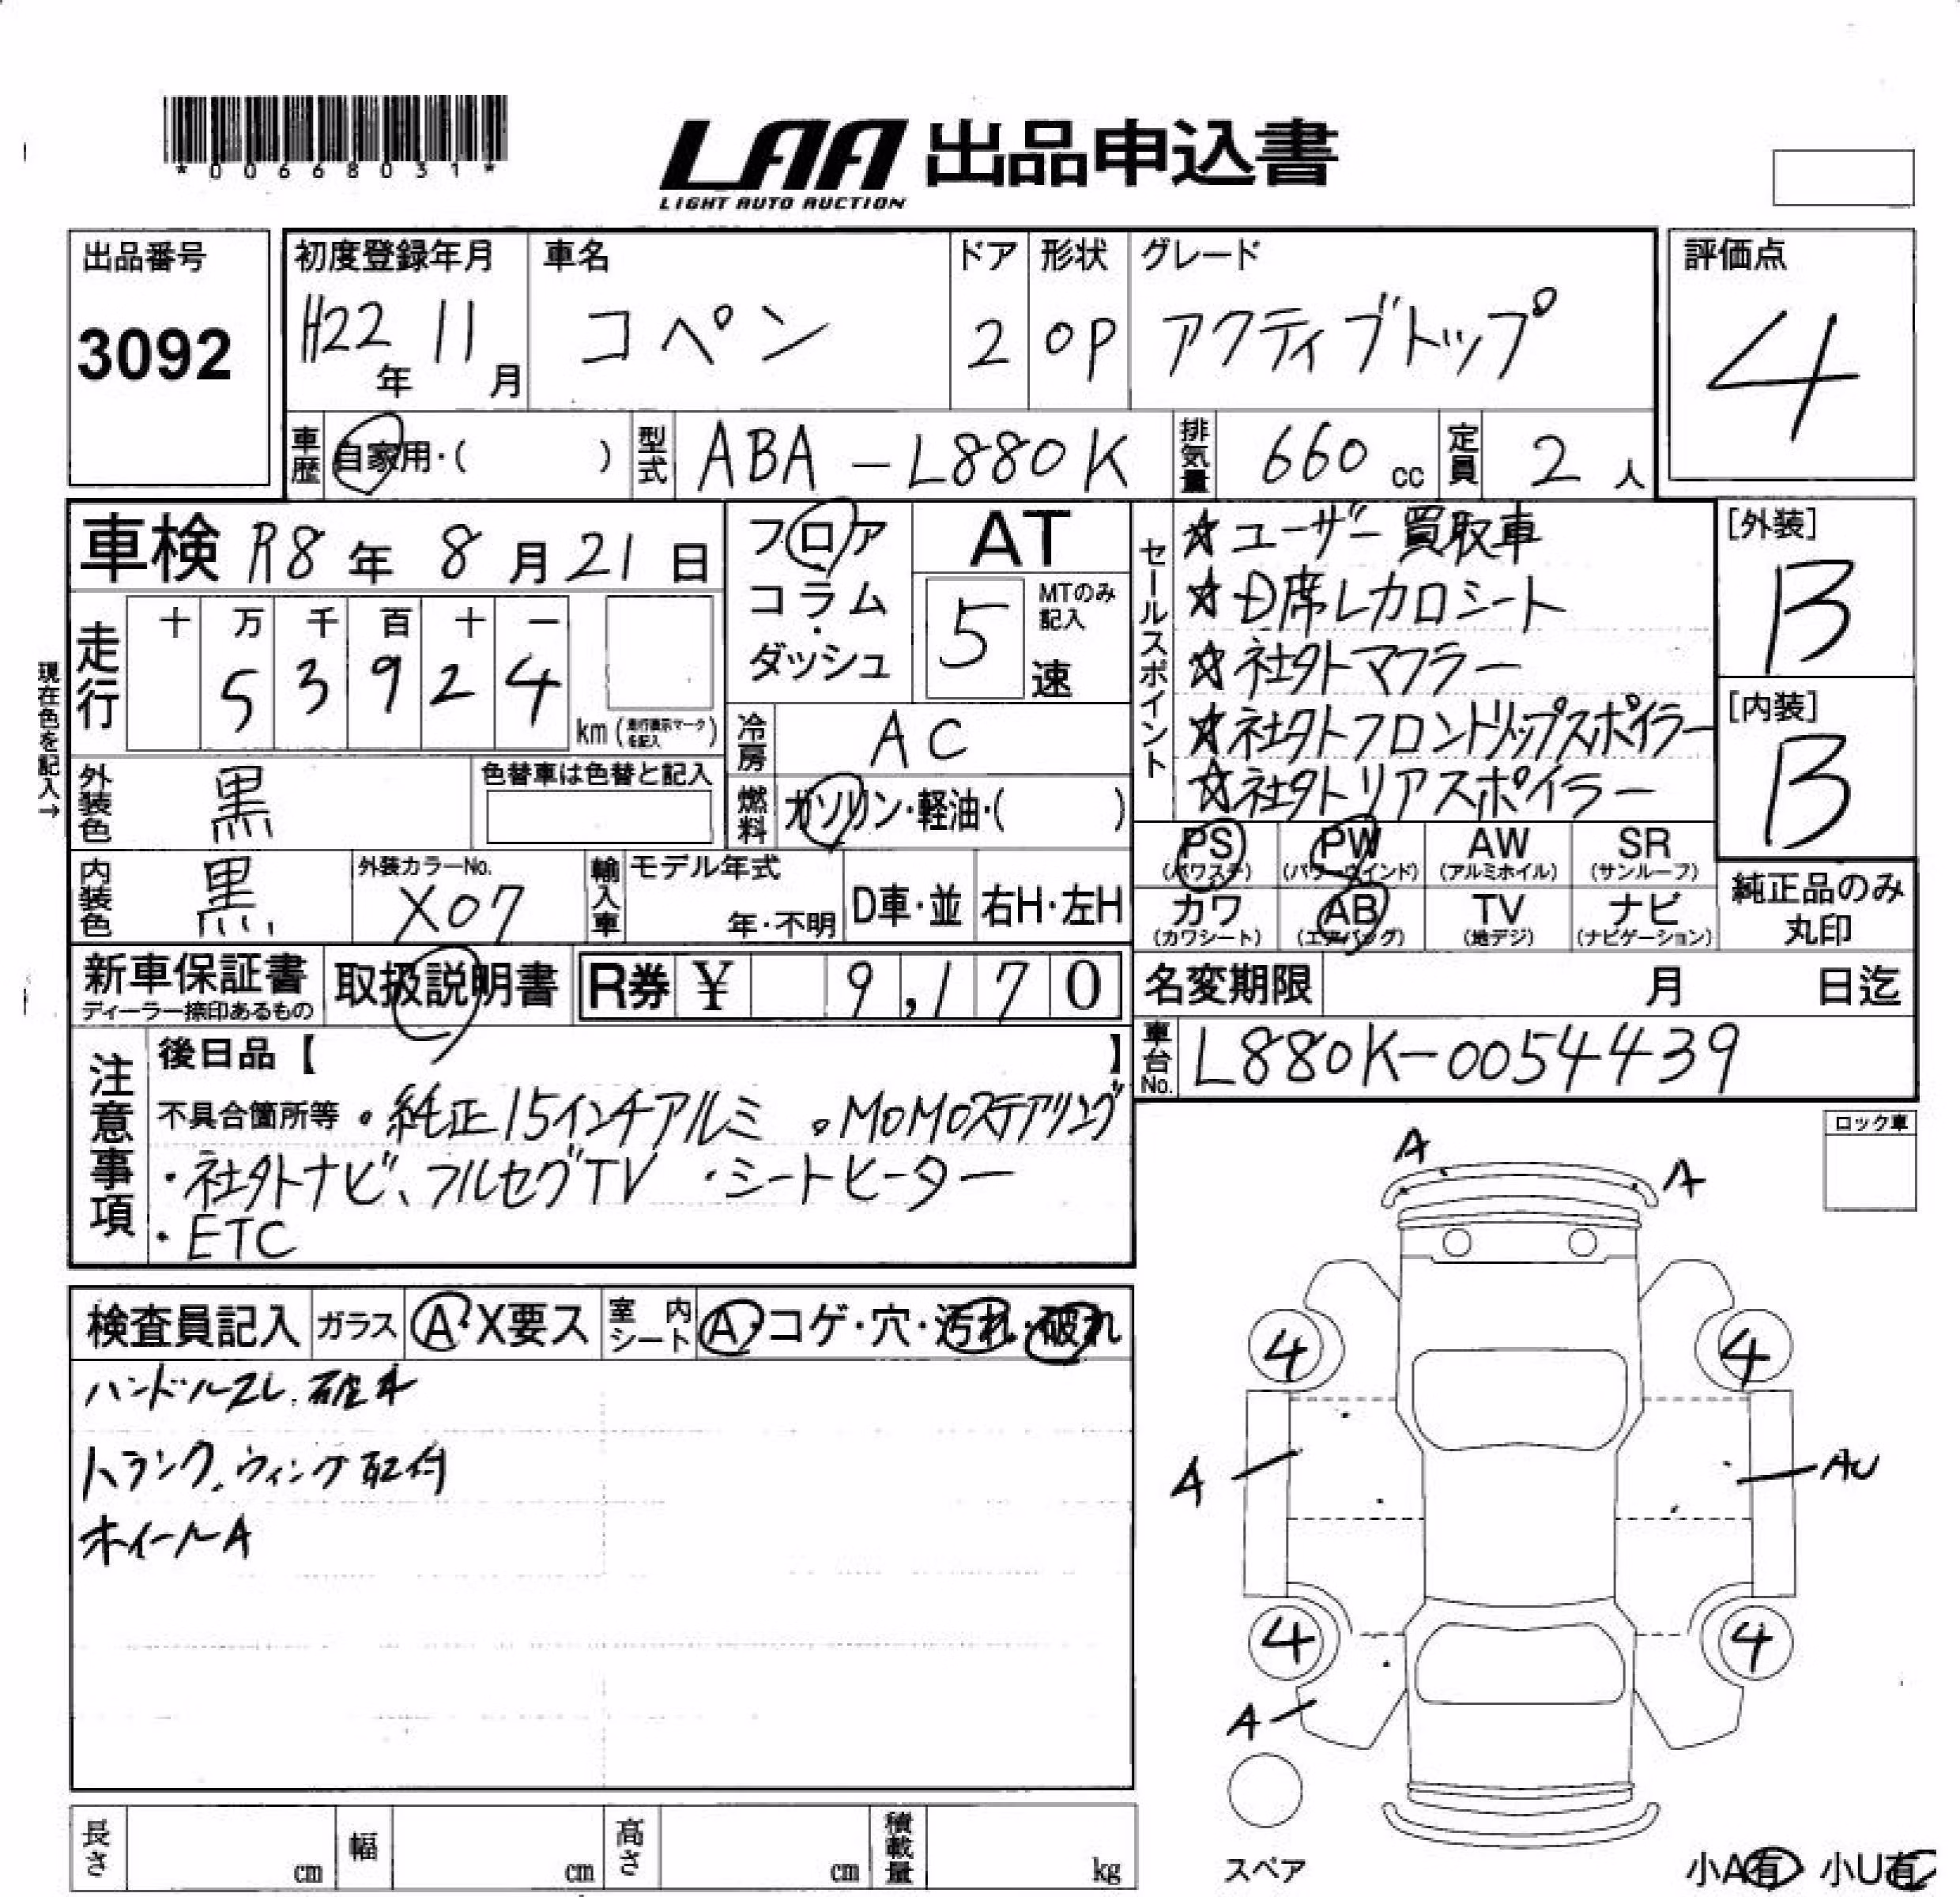 *00668031*
LAA 出品申込書
LIGHT AUTO AUCTION
出品番号
3092
初度登録年月
H22年 11月
車名
コペン
ドア
2
形状
OP
グレード
アクティブトップ
評価点
4
車歴 自家用・( )
型式 ABA-L880K
排気量 660 cc
定員 2 人
車検 R8年 8月 21日
フロア・コラム・ダッシュ
AT
5速
MTのみ記入
走行
十 万 千 百 十 一
5 3 9 2 4
km (走行表示マークを記入)
現在色を記入→
冷房 AC
燃料 ガソリン・軽油・( )
外装色 黒
色替車は色替と記入
内装色 黒
外装カラーNo.
X07
輸入車
モデル年式
年・不明
D車・並
右H・左H
セールスポイント
☆ユーザー買取車
☆D席レカロシート
☆社外マフラー
☆社外フロントリップスポイラー
☆社外リアスポイラー
[外装]
B
[内装]
B
PS (パワステ)
PW (パワーウインド)
AW (アルミホイル)
SR (サンルーフ)
カワ (カワシート)
AB (エアバッグ)
TV (地デジ)
ナビ (ナビゲーション)
純正品のみ丸印
新車保証書
ディーラー捺印あるもの
取扱説明書
R券 ¥ 9,170
名変期限 月 日迄
車台No. L880K-0054439
注意事項
後日品【 】
不具合箇所等 ・純正15インチアルミ ・MOMOステアリング
・社外ナビ、フルセグTV ・シートヒーター
・ETC
ロック車
検査員記入
ガラス A・X要ス
室内シート A・コゲ・穴・汚れ・破れ
ハンドルスレ、破れ
トランク、ウィング取付
ホイールA
A
A
4
4
A
AU
4
4
A
スペア
小A有 小U有
長さ cm
幅 cm
高さ cm
積載量 kg